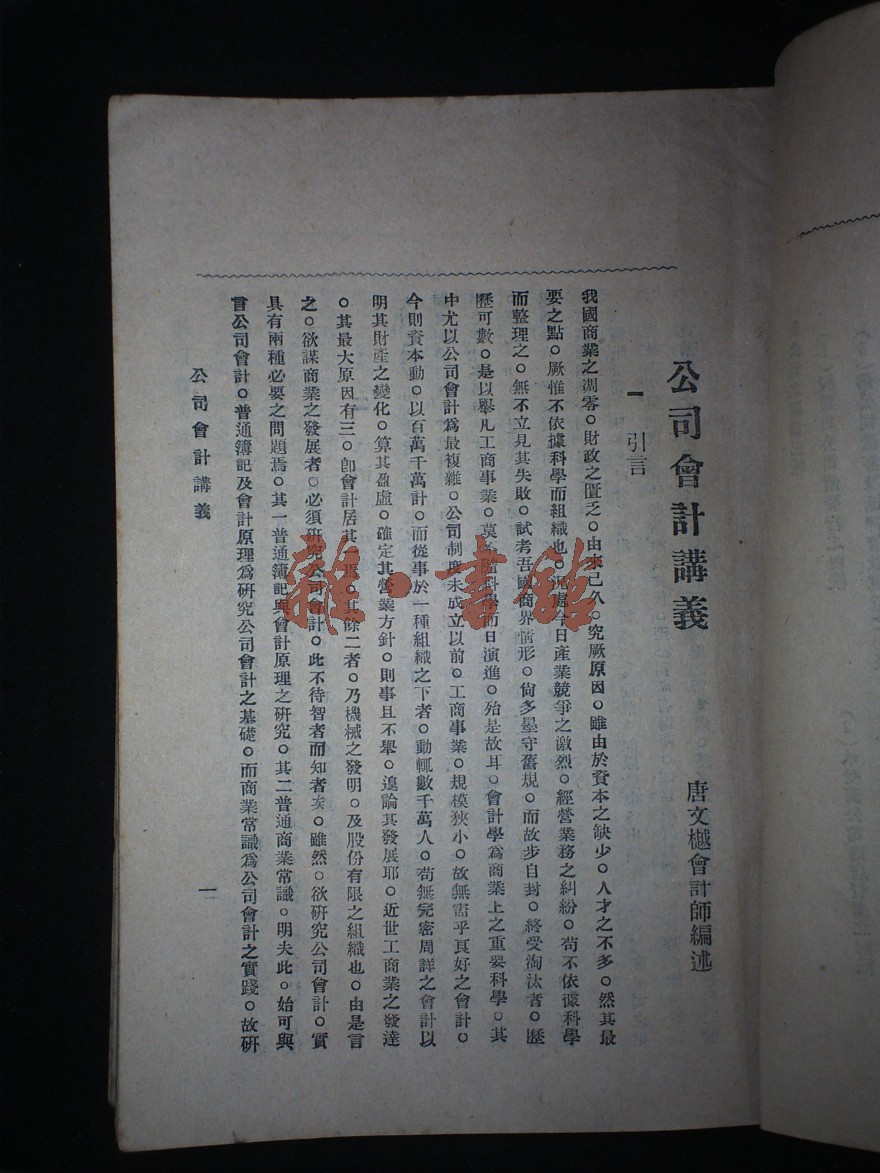 公司會計講義
唐文樾會計師編述
一 引言
我國商業之凋零。財政之匱乏。由來已久。究厥原因。雖由於資本之缺少。人才之不多。然其最
要之點。厥惟不依據科學而組織也。況處今日產業競爭之激烈。經營業務之糾紛。苟不依據科學
而整理之。無不立見其失敗。試考吾國商界情形。尙多墨守舊規。而故步自封。終受淘汰者。歷
歷可數。是以舉凡工商事業。莫不隨科學而日演進。殆是故耳。會計學爲商業上之重要科學。其
中尤以公司會計爲最複雜。公司制度未成立以前。工商事業。規模狹小。故無需乎良好之會計。
今則資本動。以百萬千萬計。而從事於一種組織之下者。動輒數千萬人。苟無完密周詳之會計以
明其財產之變化。算其盈虛。確定其營業方針。則事且不舉。遑論其發展耶。近世工商業之發達
。其最大原因有三。卽會計居其一焉。其餘二者。乃機械之發明。及股份有限之組織也。由是言
之。欲謀商業之發展者。必須研究公司會計。此不待智者而知者矣。雖然。欲研究公司會計。實
具有兩種必要之問題焉。其一普通簿記與會計原理之研究。其二普通商業常識。明夫此。始可與
言公司會計。普通簿記及會計原理爲研究公司會計之基礎。而商業常識爲公司會計之實踐。故研
公司會計講義
一
雜·書館